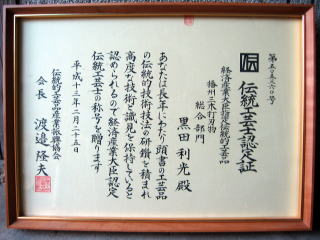 伝統工芸士認定証
経済産業大臣指定伝統的工芸品
播州三木打刃物
総合部門
黒田利光殿
あなたは長年にわたり頭書の工芸品
の伝統的技術技法の研鑽を積まれ
高度な技術と識見を保持していると
認められるので経済産業大臣認定
伝統工芸士の称号を贈ります
平成十三年二月二十五日
伝統的工芸品産業振興協会
会長 渡邉隆夫